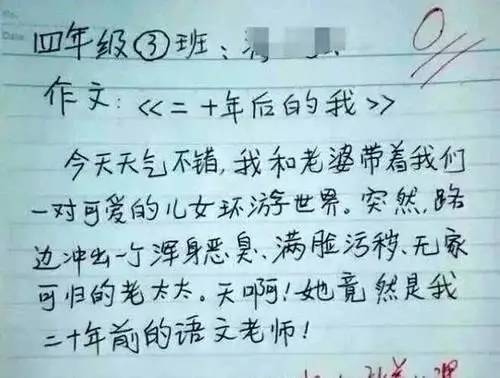 四年级③班:
作文:《二十年后的我》
今天天气不错,我和老婆带着我们
一对可爱的儿女环游世界。突然,路
边冲出一个浑身恶臭、满脸污秽、无家
可归的老太太。天啊!她竟然是我
二十年前的语文老师!
0